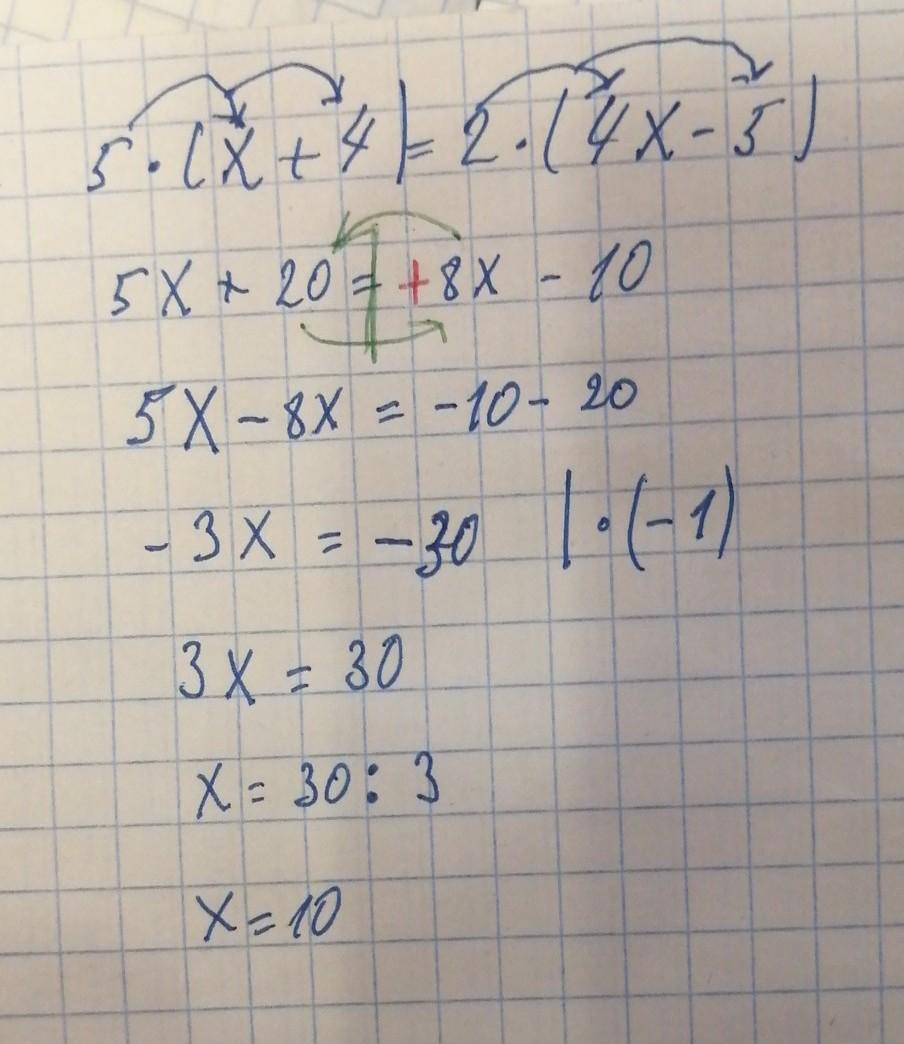 5·(x+4)=2·(4x-5)
5x+20=+8x-10
5x-8x=-10-20
-3x=-30 |·(-1)
3x=30
x=30:3
x=10